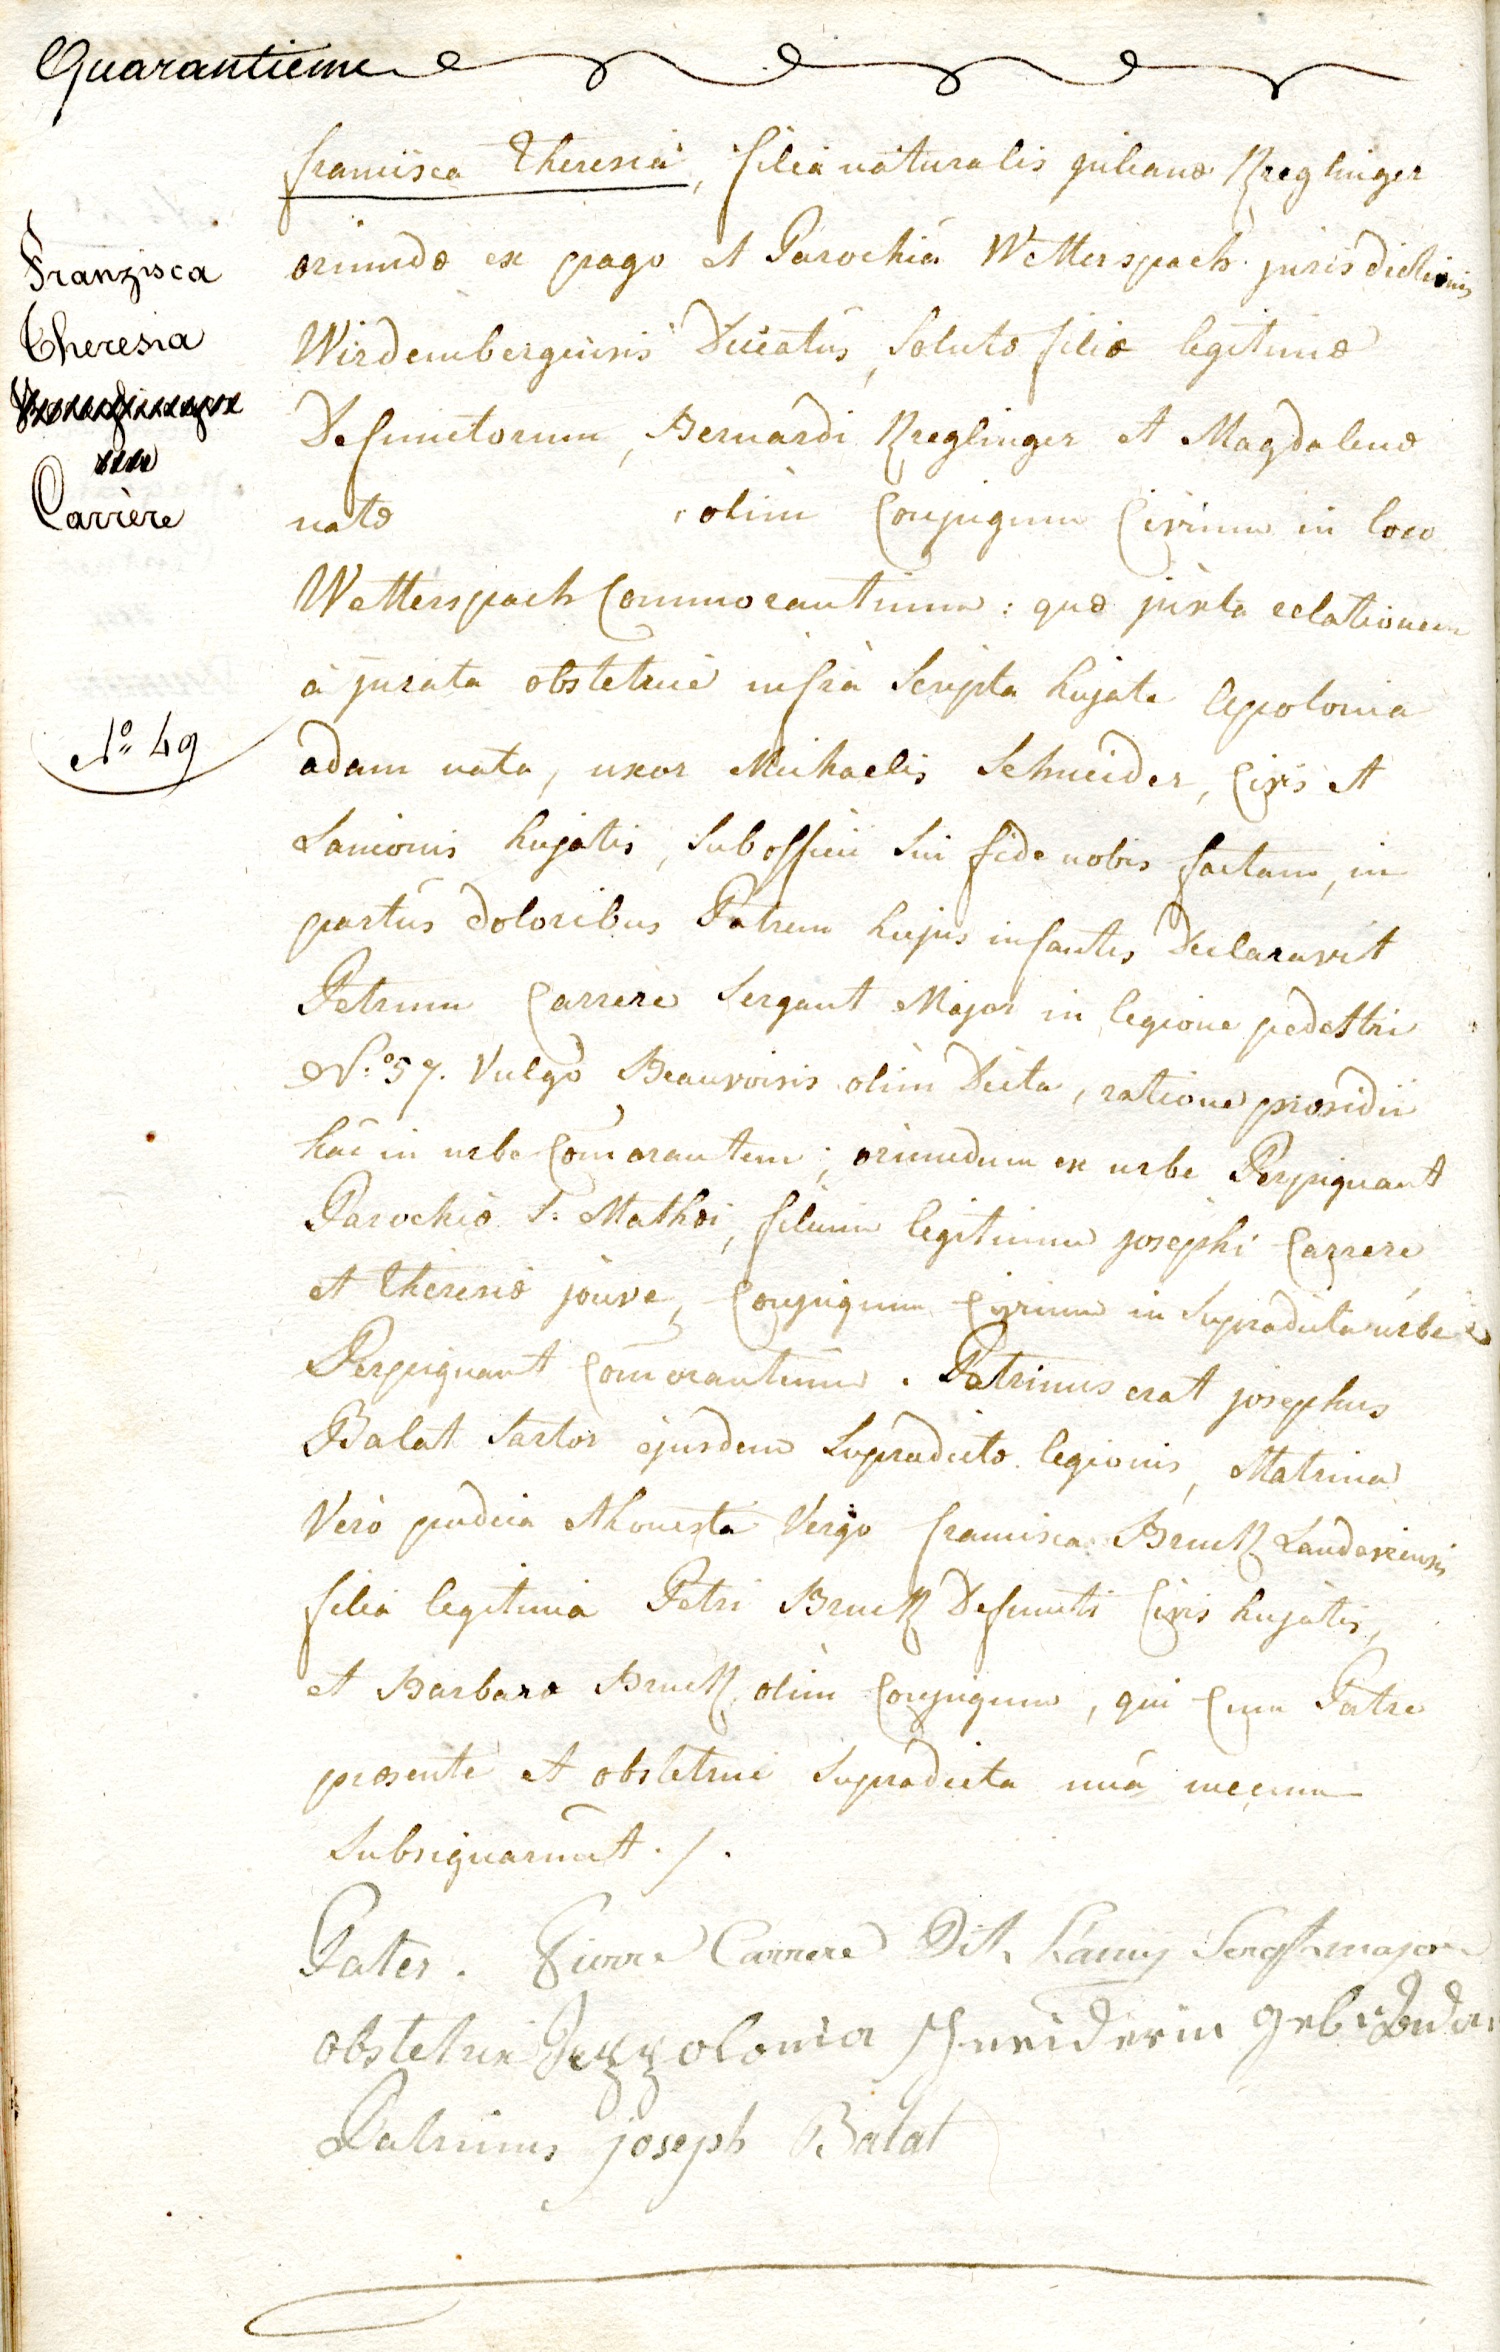 Quarantieme
francisca Theresia, filia naturalis julianæ Kreglinger
oriundæ ex pago et Parochia Wetterspach jurisdictionis
Wirdembergensis Ducatûs, solutæ filiæ legitimæ
Defunctorum, Bernardi Kreglinger et Magdalenæ
natæ , olim Conjugum Civium in loco
Wetterspach Commorantium : quæ juxta relationem
à jurata obstetrice infrà scripta hujate Apolonia
adam nata, uxor Michaelis Schneider, Civis et
Lanionis hujatis, sub officii sui fide nobis factam, in
partûs doloribus Patrem hujus infantis declaravit
Petrum Carrere Sergant Major in legione pedestri
N.º 57. vulgò Beauvoisis olim dicta, ratione præsidii
hâc in urbe com̄orantem ; oriundum ex urbe Perpignant
Parochiæ S. Mathæi, filium legitimum josephi Carrere
et Theresiæ jouve, Conjugum Civium in supradicta urbe
Perpignant Com̄orantium . Patrinus erat josephus
Balat Sartor ejusdem supradictæ legionis, Matrina
Verò pudica et honesta Virgo francisca Bruck Landaviensis
filia legitima Petri Bruck Defuncti Civis hujatis,
et Barbara Bruck olim Conjugum, qui Cum Patre
præsente et obstetrice supradicta unà mecum
subsignarunt ./.
Pater. Pierre Carrere Dit Lamy Sergt major
obstetrix Appolonia Schneiderin geb
Patrinus joseph Balat
Franzisca
Theresia
Carrère
Nº 49